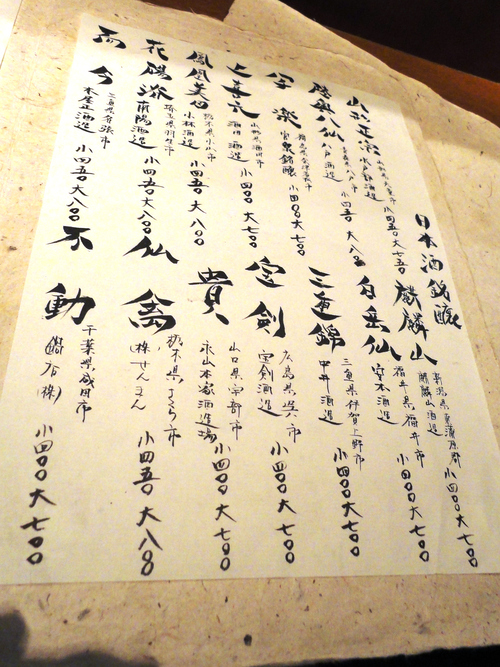 日本酒銘醸
麒麟山
新潟県東蒲原郡
麒麟山酒造
小四〇〇 大七〇〇
山形正宗
水戸部酒造
小四五〇 大七五〇
白岳仙
福井県福井市
安本酒造
小四〇〇 大七〇〇
陸奥八仙
八戸酒造
小四五〇 大八〇〇
三重錦
三重県伊賀上野市
中井酒造
小四〇〇 大七〇〇
写楽
宮泉銘醸
小四〇〇 大七〇〇
宝剣
広島県呉市
宝剣酒造
小四〇〇 大七〇〇
上喜元
山形県酒田市
酒田酒造
小四〇〇 大七〇〇
貴
山口県宇部市
永山本家酒造場
小四〇〇 大七〇〇
鳳凰美田
栃木県小山市
小林酒造
小四五〇 大八〇〇
仙禽
栃木県さくら市
(株)せんきん
小四五〇 大八〇〇
花陽浴
埼玉県羽生市
南陽酒造
小四五〇 大八〇〇
不動
千葉県成田市
鍋店(株)
小四〇〇 大七〇〇
而今
三重県名張市
木屋正酒造
小四五〇 大八〇〇